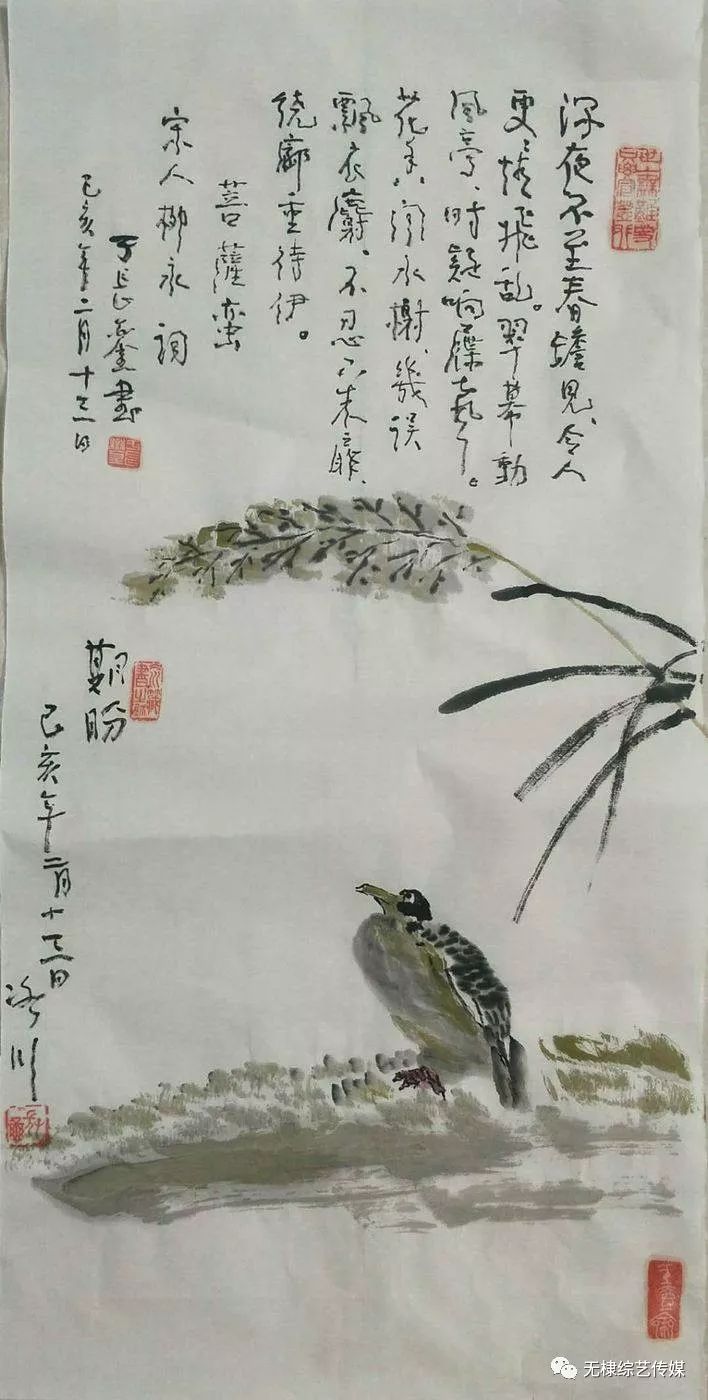 深夜不至春蟾见、令人
更〻情飛乱。翠幕動
風亭、时疑响屧声。
花香闻水榭、幾误
飄衣麝、不忍下朱扉、
绕廊重待伊。
菩薩蛮
宋人柳永词
書
己亥年二月十三日
期盼
己亥年二月十三日
川
无棣综艺传媒